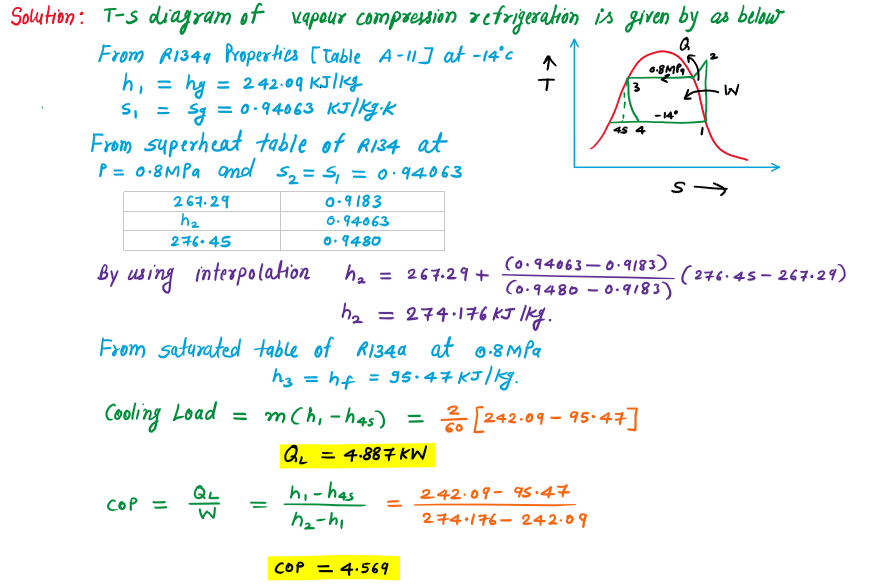 Solution: T-s diagram of vapour compression refrigeration is given by as below
From R134a Properties [Table A-11] at -14°C
h₁ = hg = 242.09 KJ/kg
s₁ = sg = 0.94063 KJ/kg.K
From superheat table of R134 at
P = 0.8MPa and s₂ = s₁ = 0.94063
267.29 0.9183
h₂ 0.94063
276.45 0.9480
By using interpolation h₂ = 267.29 + (0.94063 - 0.9183) / (0.9480 - 0.9183) (276.45 - 267.29)
h₂ = 274.176 KJ/kg.
From saturated table of R134a at 0.8MPa
h₃ = hf = 95.47 KJ/kg.
Cooling Load = m(h₁ - h₄s) = 2/60 [242.09 - 95.47]
QL = 4.887 KW
COP = QL/W = (h₁ - h₄s)/(h₂ - h₁) = (242.09 - 95.47)/(274.176 - 242.09)
COP = 4.569
T
Q
2
0.8MPa
3
W
-14°
4s 4
1
S